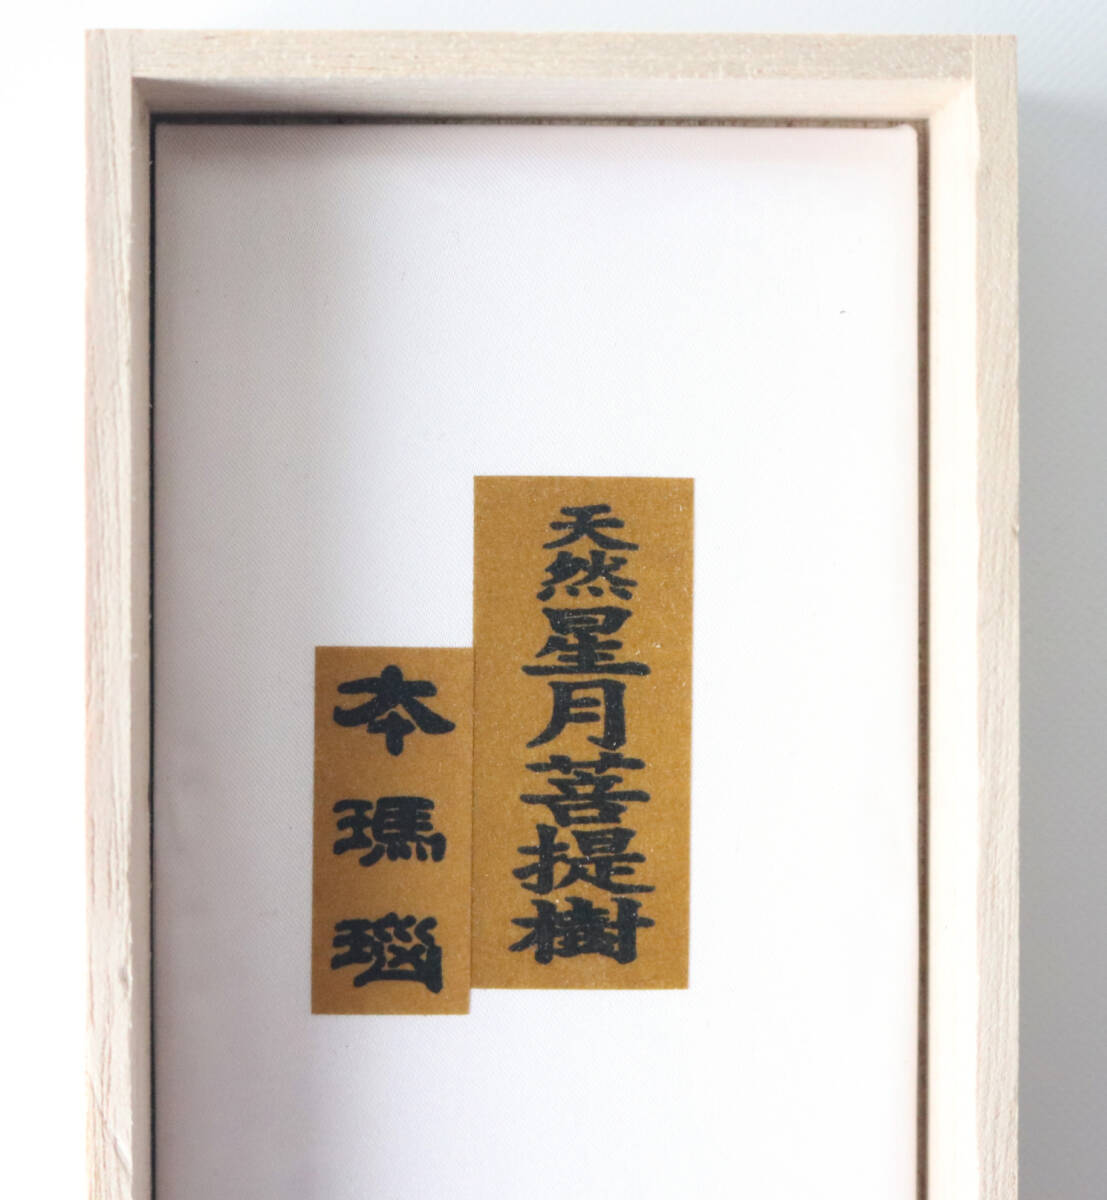 天然星月菩提樹
本瑪瑙